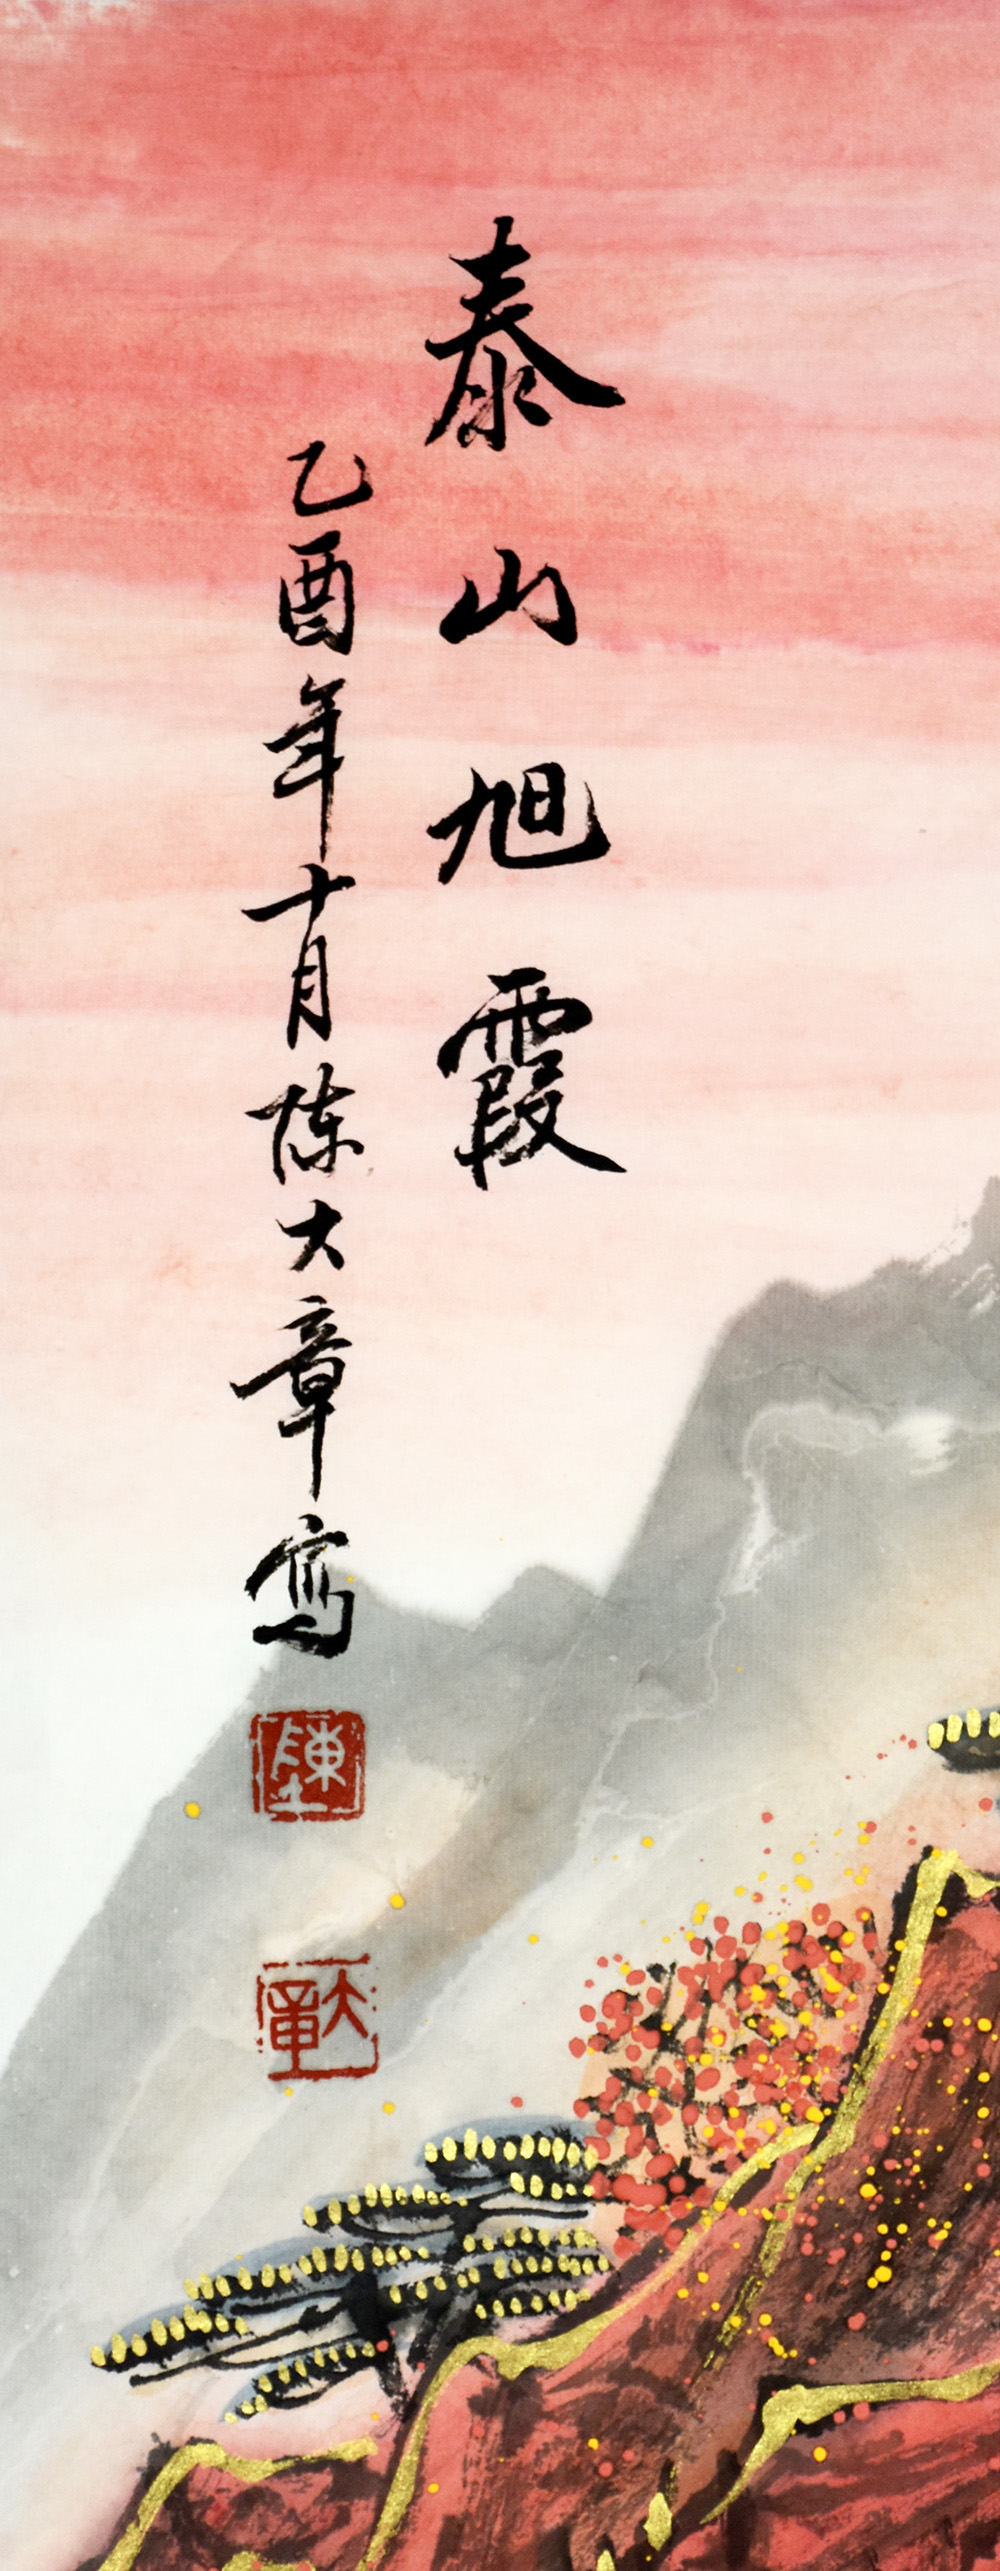 泰山旭霞
乙酉年十月陈大章写
陳
大章